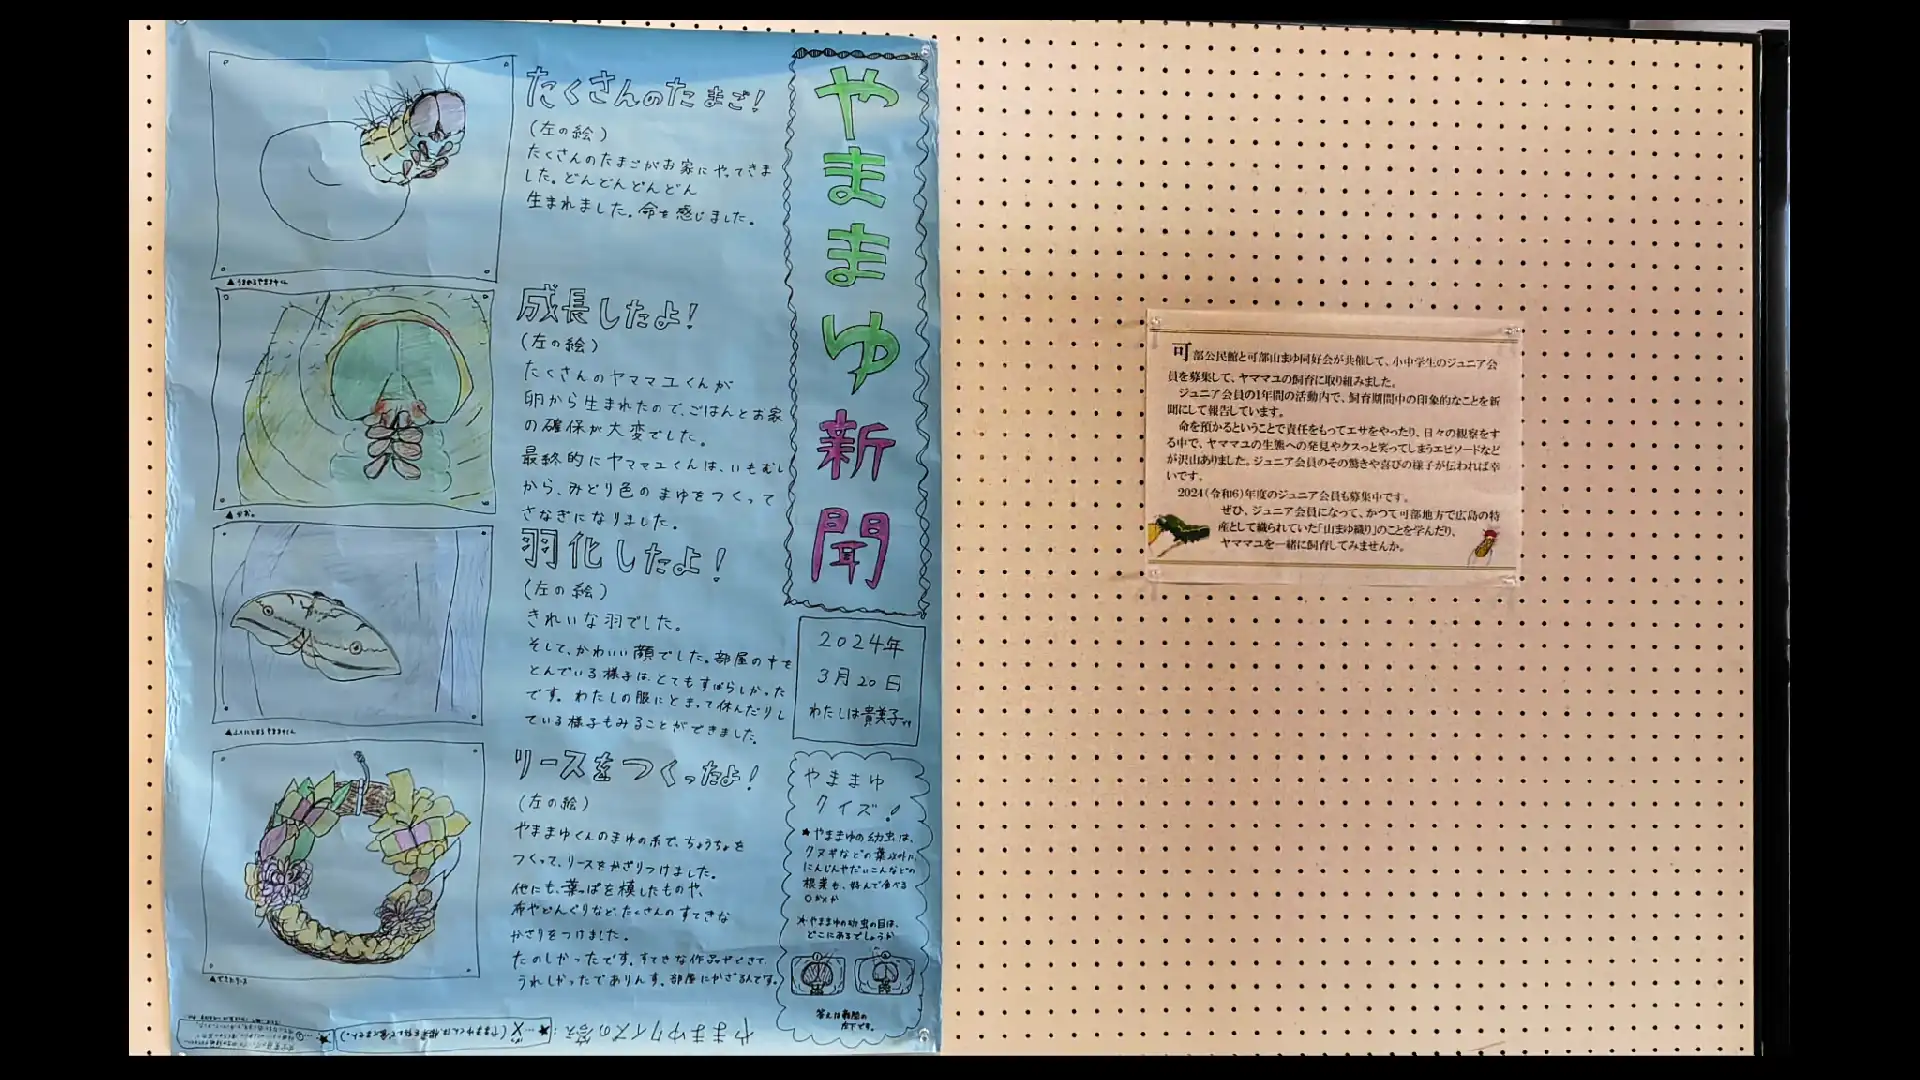 やままゆ新聞
2024年
3月20日
わたしは貴美子です
たくさんのたまご!
(左の絵)
たくさんのたまごがお家にやってきま
した。どんどんどんどん
生まれました。命を感じました。
成長したよ!
(左の絵)
たくさんのヤママユくんが
卵から生まれたので、ごはんとお家
の確保が大変でした。
最終的にヤママユくんは、いもむし
から、みどり色のまゆをつくって
さなぎになりました。
羽化したよ!
(左の絵)
きれいな羽でした。
そして、かわいい顔でした。部屋の中を
とんでいる様子は、とてもすばらしかった
です。わたしの服にとまって休んだりし
ている様子もみることができました。
リースをつくったよ!
(左の絵)
やままゆくんのまゆの糸で、ちょうちょを
つくって、リースをかざりつけました。
他にも、葉っぱを模したものや、
布やどんぐりなど、たくさんのすてきな
かざりをつけました。
たのしかったです。すてきな作品ができて、
うれしかったでありんす。部屋にかざるんです。
やままゆ
クイズ!
★やままゆの幼虫は、
クヌギなどの葉以外に、
にんじんやだいこんなどの
根菜も、好んで食べる
○か×か
やままゆの幼虫の目は、
どこにあるでしょうか
答えは新聞の
左下です。
やままゆクイズの答え:
可部公民館と可部山まゆ同好会が共催して、小中学生のジュニア会
員を募集して、ヤママユの飼育に取り組みました。
ジュニア会員の1年間の活動内で、飼育期間中の印象的なことを新
聞にして報告しています。
命を預かるということで責任をもってエサをやったり、日々の観察をす
る中で、ヤママユの生態への発見やクスっと笑ってしまうエピソードなど
が沢山ありました。ジュニア会員のその驚きや喜びの様子が伝われば幸
いです。
2024(令和6)年度のジュニア会員も募集中です。
ぜひ、ジュニア会員になって、かつて可部地方で広島の特
産として織られていた「山まゆ織り」のことを学んだり、
ヤママユを一緒に飼育してみませんか。